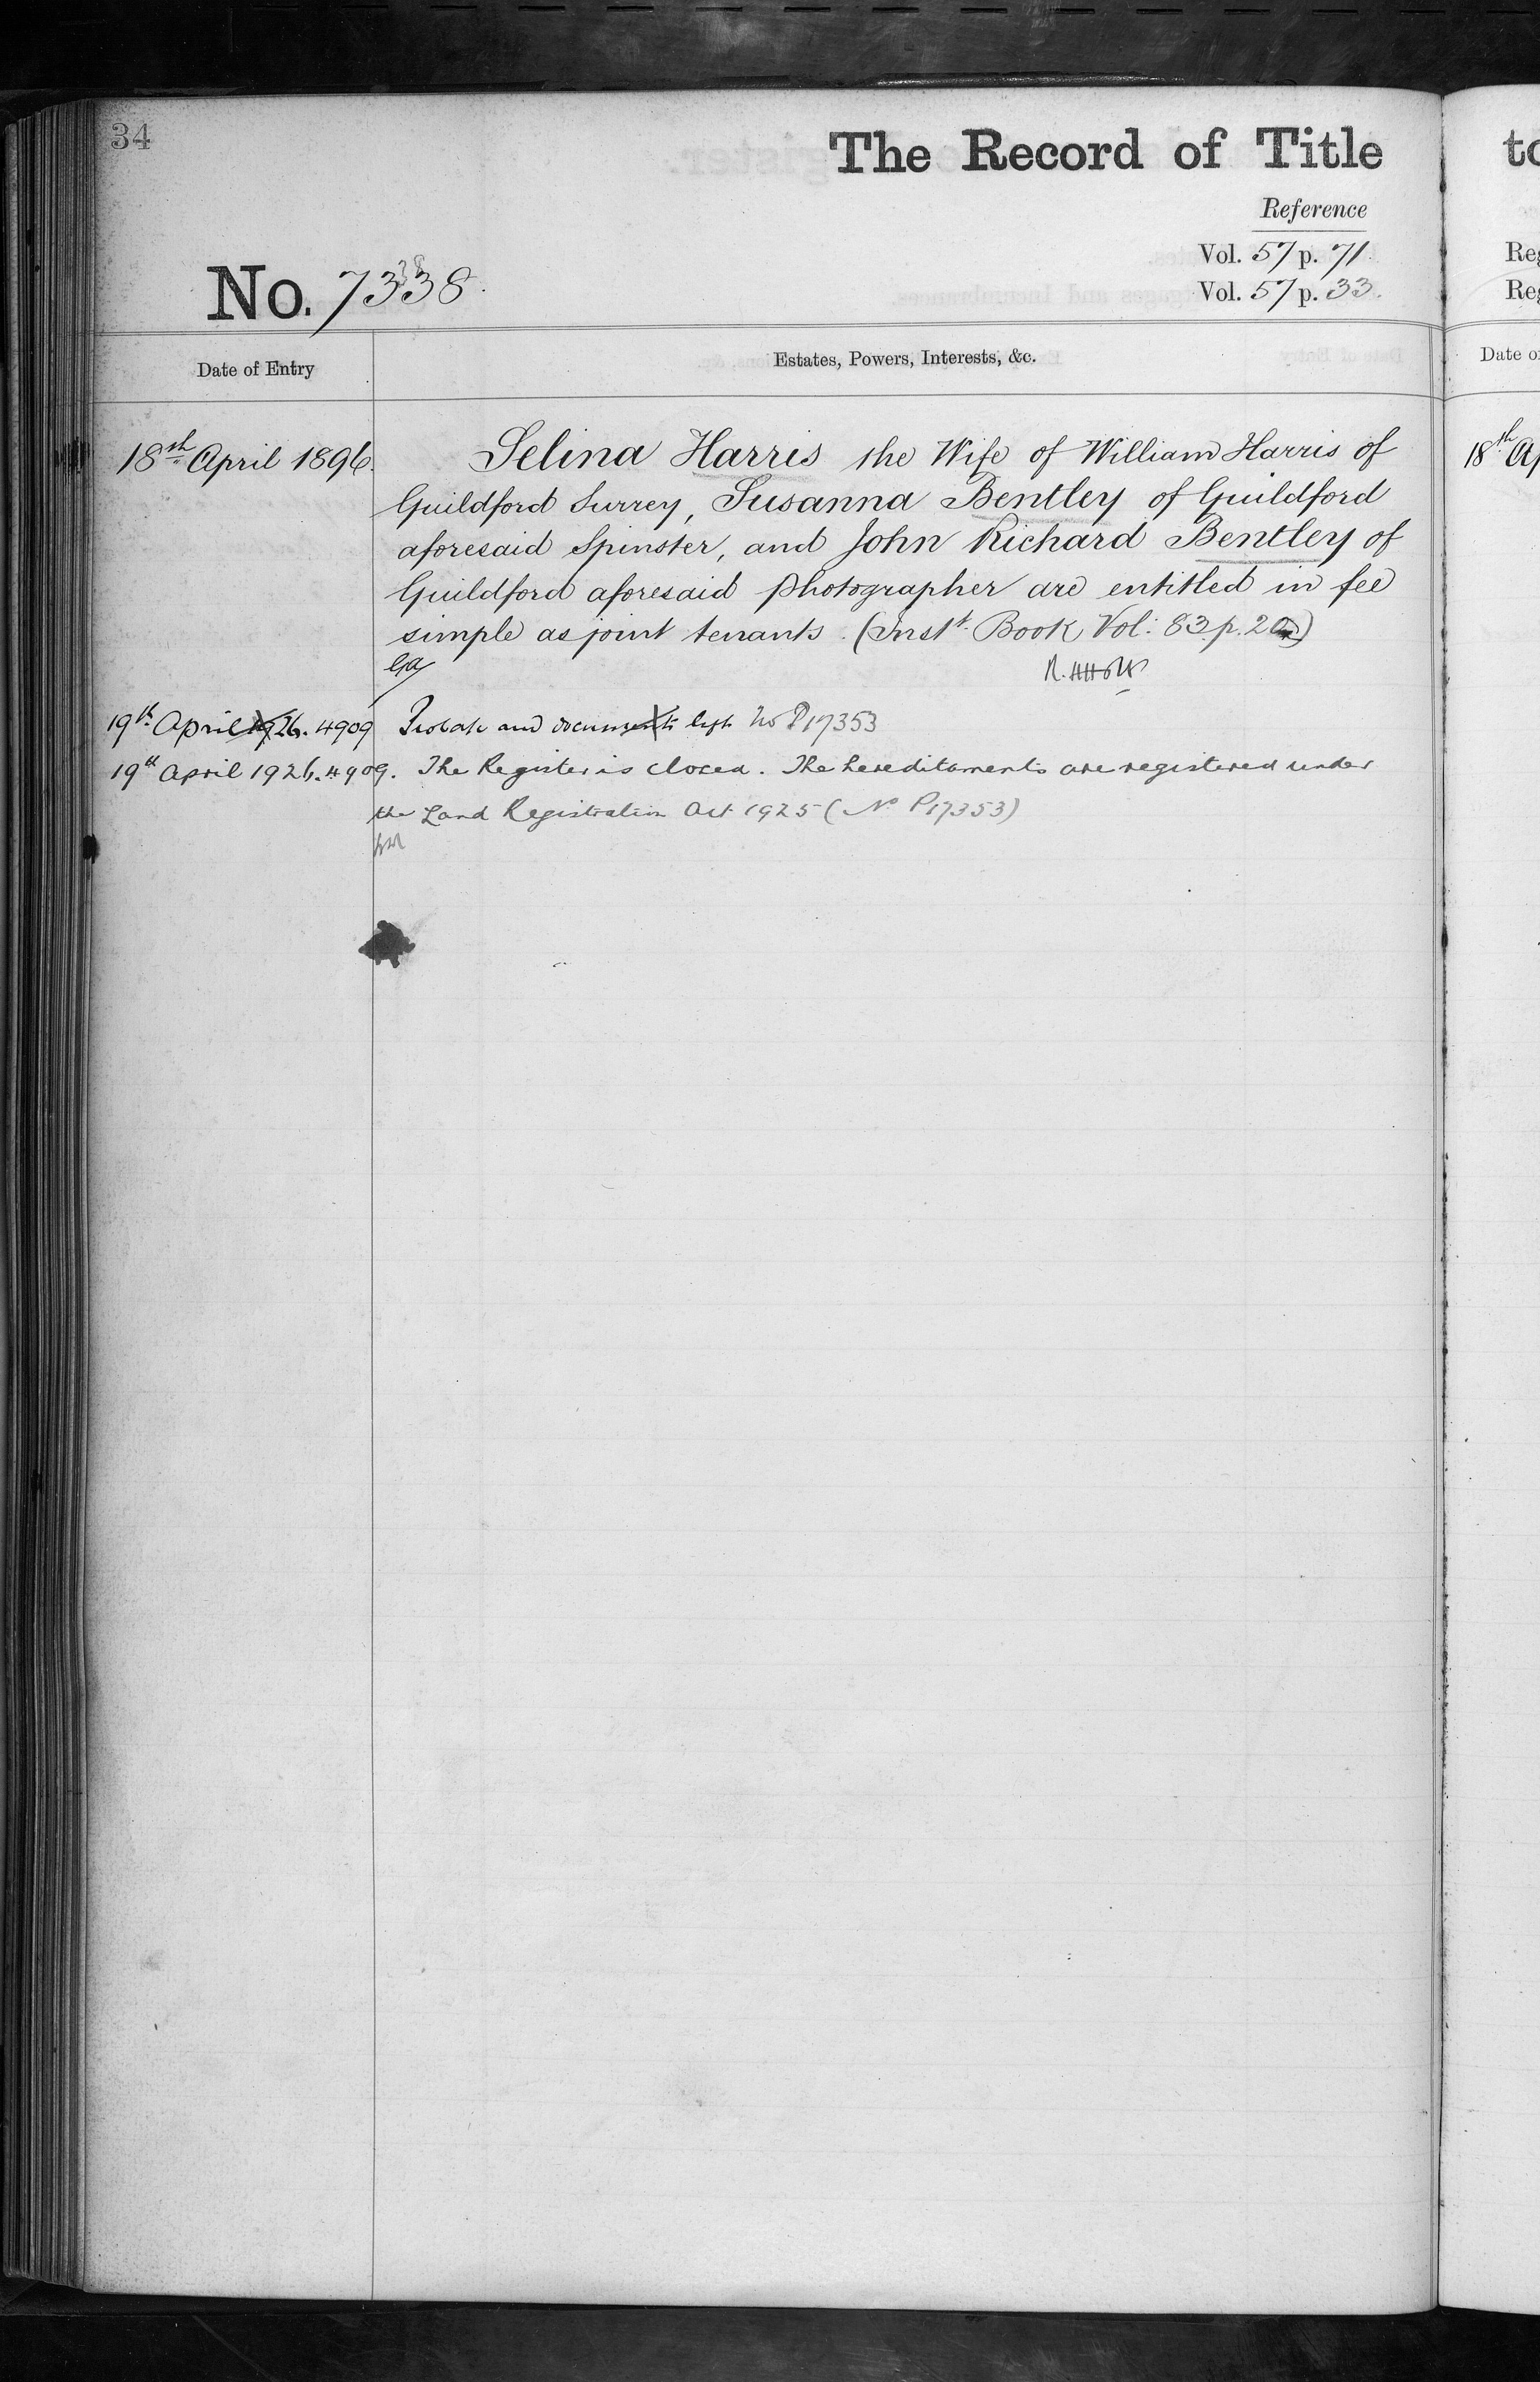 34
The Record of Title
Reference
Vol. 57 p. 71.
Vol. 57 p. 33.
No. 7338.
Date of Entry
Estates, Powers, Interests, &c.
18th April 1896.
Selina Harris the Wife of William Harris of
Guildford Surrey, Susanna Bentley of Guildford
aforesaid Spinster, and John Richard Bentley of
Guildford aforesaid photographer are entitled in fee
simple as joint tenants. (Inst. Book Vol: 83. p. 20)
19th April 1926. 4909 Probate and documents No P17353
19th April 1926. 4909. The Register is closed. The hereditaments are registered under
the Land Registration Act 1925 (No P17353)
to
Reg
Reg
Date o
18th Ap